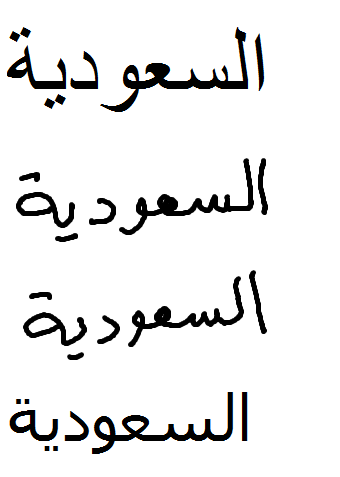 السعودية
السعودية
السعودية
السعودية